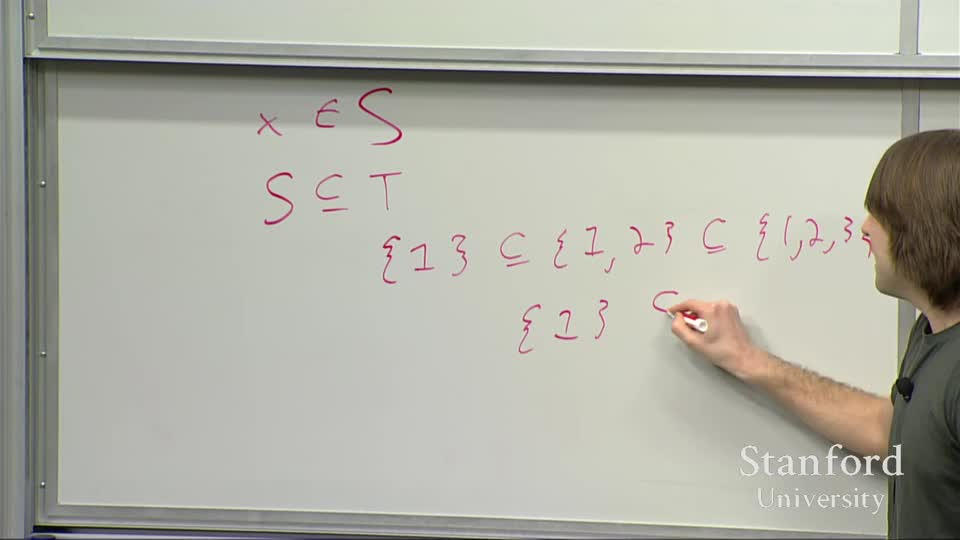 x ∈ S
S ⊆ T
{1} ⊆ {1,2} ⊆ {1,2,3}
{1} ⊂
Stanford
University